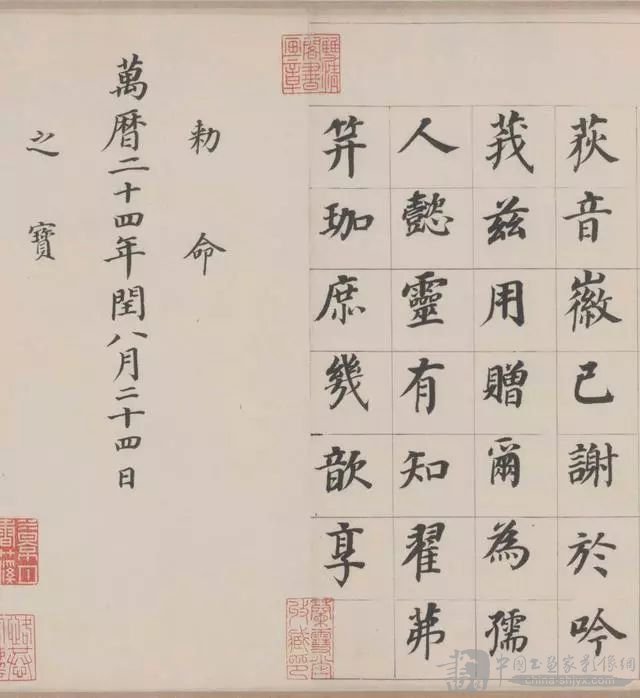 荻音徽已謝於吟
莪茲用贈爾為孺
人懿靈有知翟茀
笄珈庶幾歆享
勅命
萬曆二十四年閏八月二十四日
之寶
china-shjyx.com